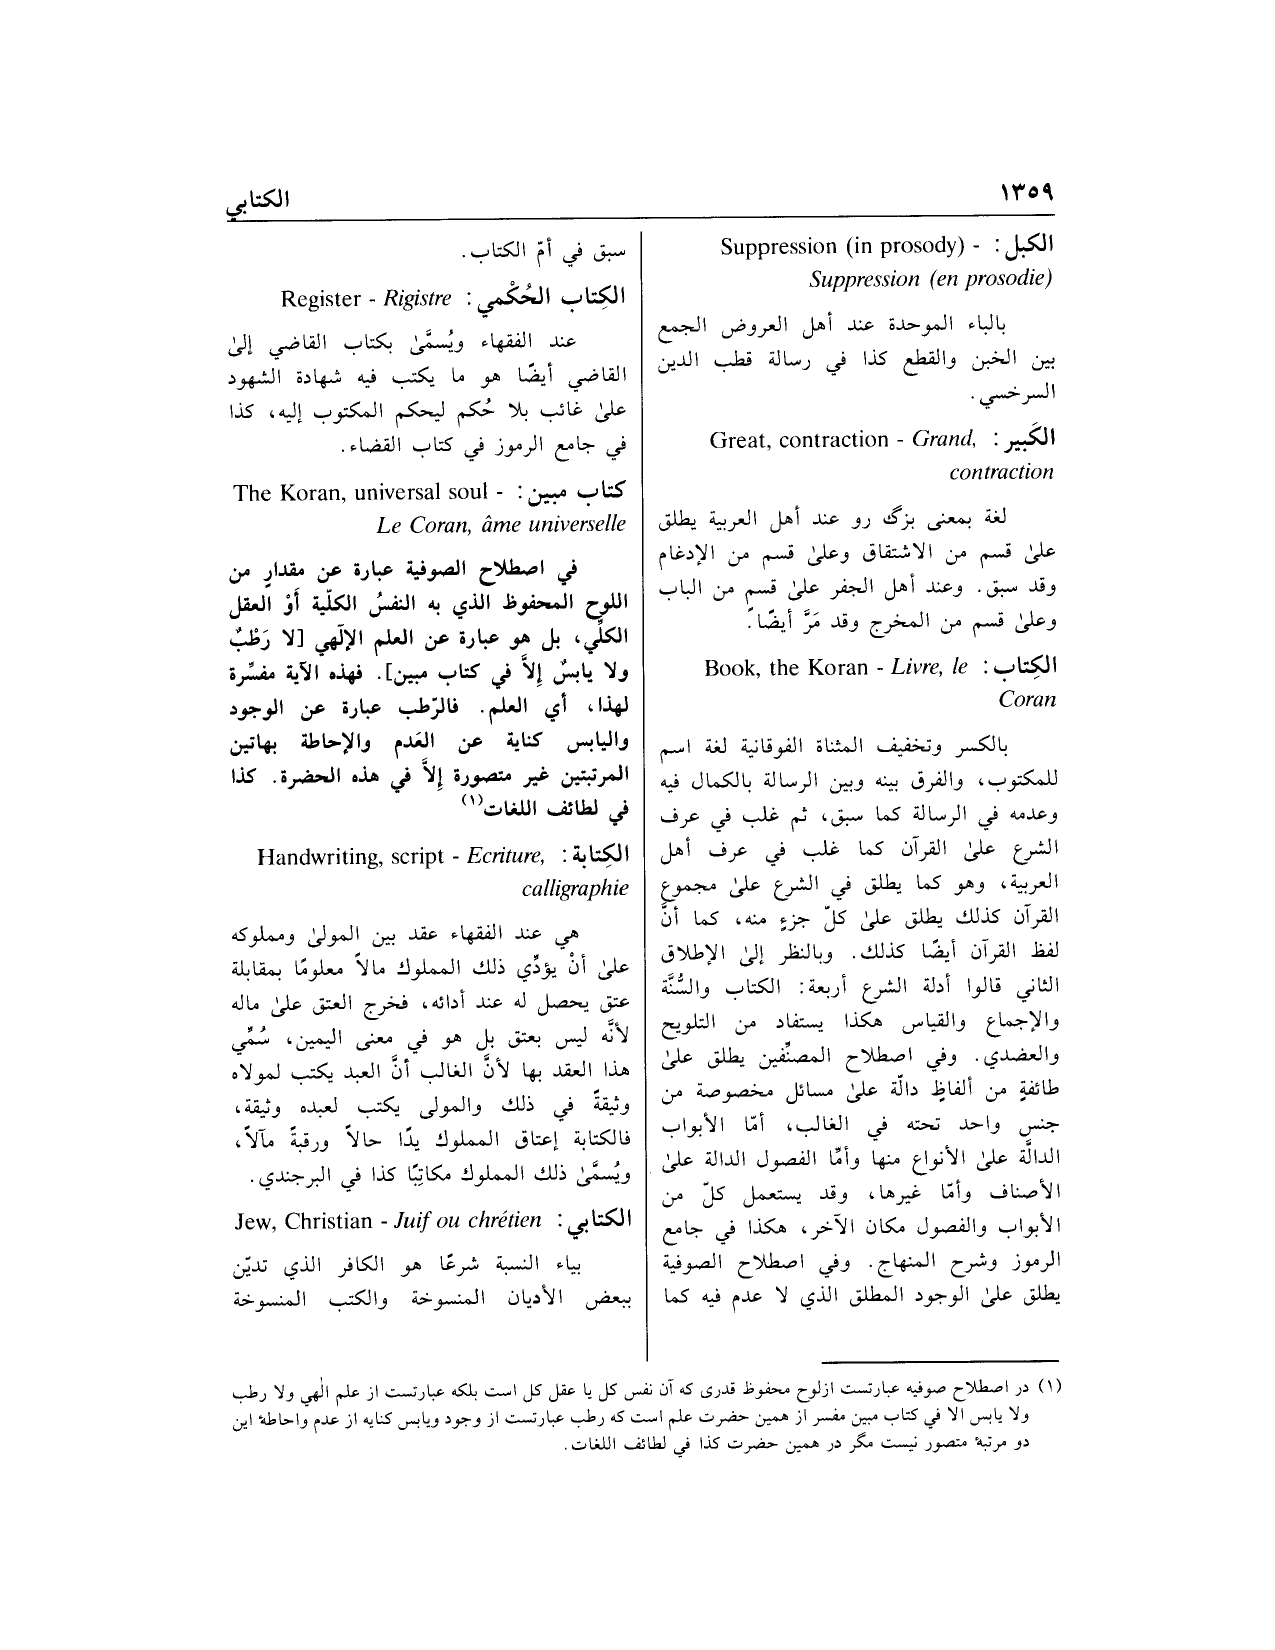 ١٣٥٩
الكتابي
الكبل: Suppression (in prosody) -
Suppression (en prosodie)
بالباء الموحدة عند أهل العروض الجمع
بين الخبن والقطع كذا في رسالة قطب الدين
السرخسي.
الكَبير: Great, contraction - Grand,
contraction
لغة بمعنى بزگ رو عند أهل العربية يطلق
علىٰ قسم من الاشتقاق وعلىٰ قسم من الإدغام
وقد سبق. وعند أهل الجفر علىٰ قسم من الباب
وعلىٰ قسم من المخرج وقد مَرَّ أيضًا.
الكِتاب: Book, the Koran - Livre, le
Coran
بالكسر وتخفيف المثناة الفوقانية لغة اسم
للمكتوب، والفرق بينه وبين الرسالة بالكمال فيه
وعدمه في الرسالة كما سبق، ثم غلب في عرف
الشرع علىٰ القرآن كما غلب في عرف أهل
العربية، وهو كما يطلق في الشرع علىٰ مجموع
القرآن كذلك يطلق علىٰ كلّ جزءٍ منه، كما أنَّ
لفظ القرآن أيضًا كذلك. وبالنظر إلىٰ الإطلاق
الثاني قالوا أدلة الشرع أربعة: الكتاب والسُّنَّة
والإجماع والقياس هكذا يستفاد من التلويح
والعضدي. وفي اصطلاح المصنِّفين يطلق علىٰ
طائفةٍ من ألفاظٍ دالّة علىٰ مسائل مخصوصة من
جنس واحد تحته في الغالب، أمّا الأبواب
الدالَّة علىٰ الأنواع منها وأمَّا الفصول الدالة علىٰ
الأصناف وأمّا غيرها، وقد يستعمل كلّ من
الأبواب والفصول مكان الآخر، هكذا في جامع
الرموز وشرح المنهاج. وفي اصطلاح الصوفية
يطلق علىٰ الوجود المطلق الذي لا عدم فيه كما
سبق في أمّ الكتاب.
الكِتاب الحُكْمي: Register - Rigistre
عند الفقهاء ويُسمَّىٰ بكتاب القاضي إلىٰ
القاضي أيضًا هو ما يكتب فيه شهادة الشهود
علىٰ غائب بلا حُكم ليحكم المكتوب إليه، كذا
في جامع الرموز في كتاب القضاء.
كتاب مبين: The Koran, universal soul -
Le Coran, âme universelle
في اصطلاح الصوفية عبارة عن مقدارٍ من
اللوح المحفوظ الذي به النفسُ الكلّية أَوْ العقل
الكلِّي، بل هو عبارة عن العلم الإلٓهي [لا رَطْبٌ
ولا يابسٌ إِلاَّ في كتاب مبين]. فهذه الآية مفسِّرة
لهذا، أي العلم. فالرّطب عبارة عن الوجود
واليابس كناية عن العَدم والإحاطة بهاتين
المرتبتين غير متصورة إِلاَّ في هذه الحضرة. كذا
في لطائف اللغات(١)
الكِتابة: Handwriting, script - Ecriture,
calligraphie
هي عند الفقهاء عقد بين المولىٰ ومملوكه
علىٰ أنْ يؤدِّي ذلك المملوك مالاً معلومًا بمقابلة
عتق يحصل له عند أدائه، فخرج العتق علىٰ ماله
لأنَّه ليس بعتق بل هو في معنى اليمين، سُمِّي
هذا العقد بها لأنَّ الغالب أنَّ العبد يكتب لمولاه
وثيقةً في ذلك والمولى يكتب لعبده وثيقة،
فالكتابة إعتاق المملوك يدًا حالاً ورقبةً مآلاً،
ويُسمَّىٰ ذلك المملوك مكاتِبًا كذا في البرجندي.
الكتابي: Jew, Christian - Juif ou chrétien
بياء النسبة شرعًا هو الكافر الذي تديّن
ببعض الأديان المنسوخة والكتب المنسوخة
(١) در اصطلاح صوفيه عبارتست ازلوح محفوظ قدرى كه آن نفس كل يا عقل كل است بلكه عبارتست از علم الٰهي ولا رطب
ولا يابس الا في كتاب مبين مفسر از همين حضرت علم است كه رطب عبارتست از وجود ويابس كنايه از عدم واحاطهٔ اين
دو مرتبهٔ متصور نيست مگر در همين حضرت كذا في لطائف اللغات.